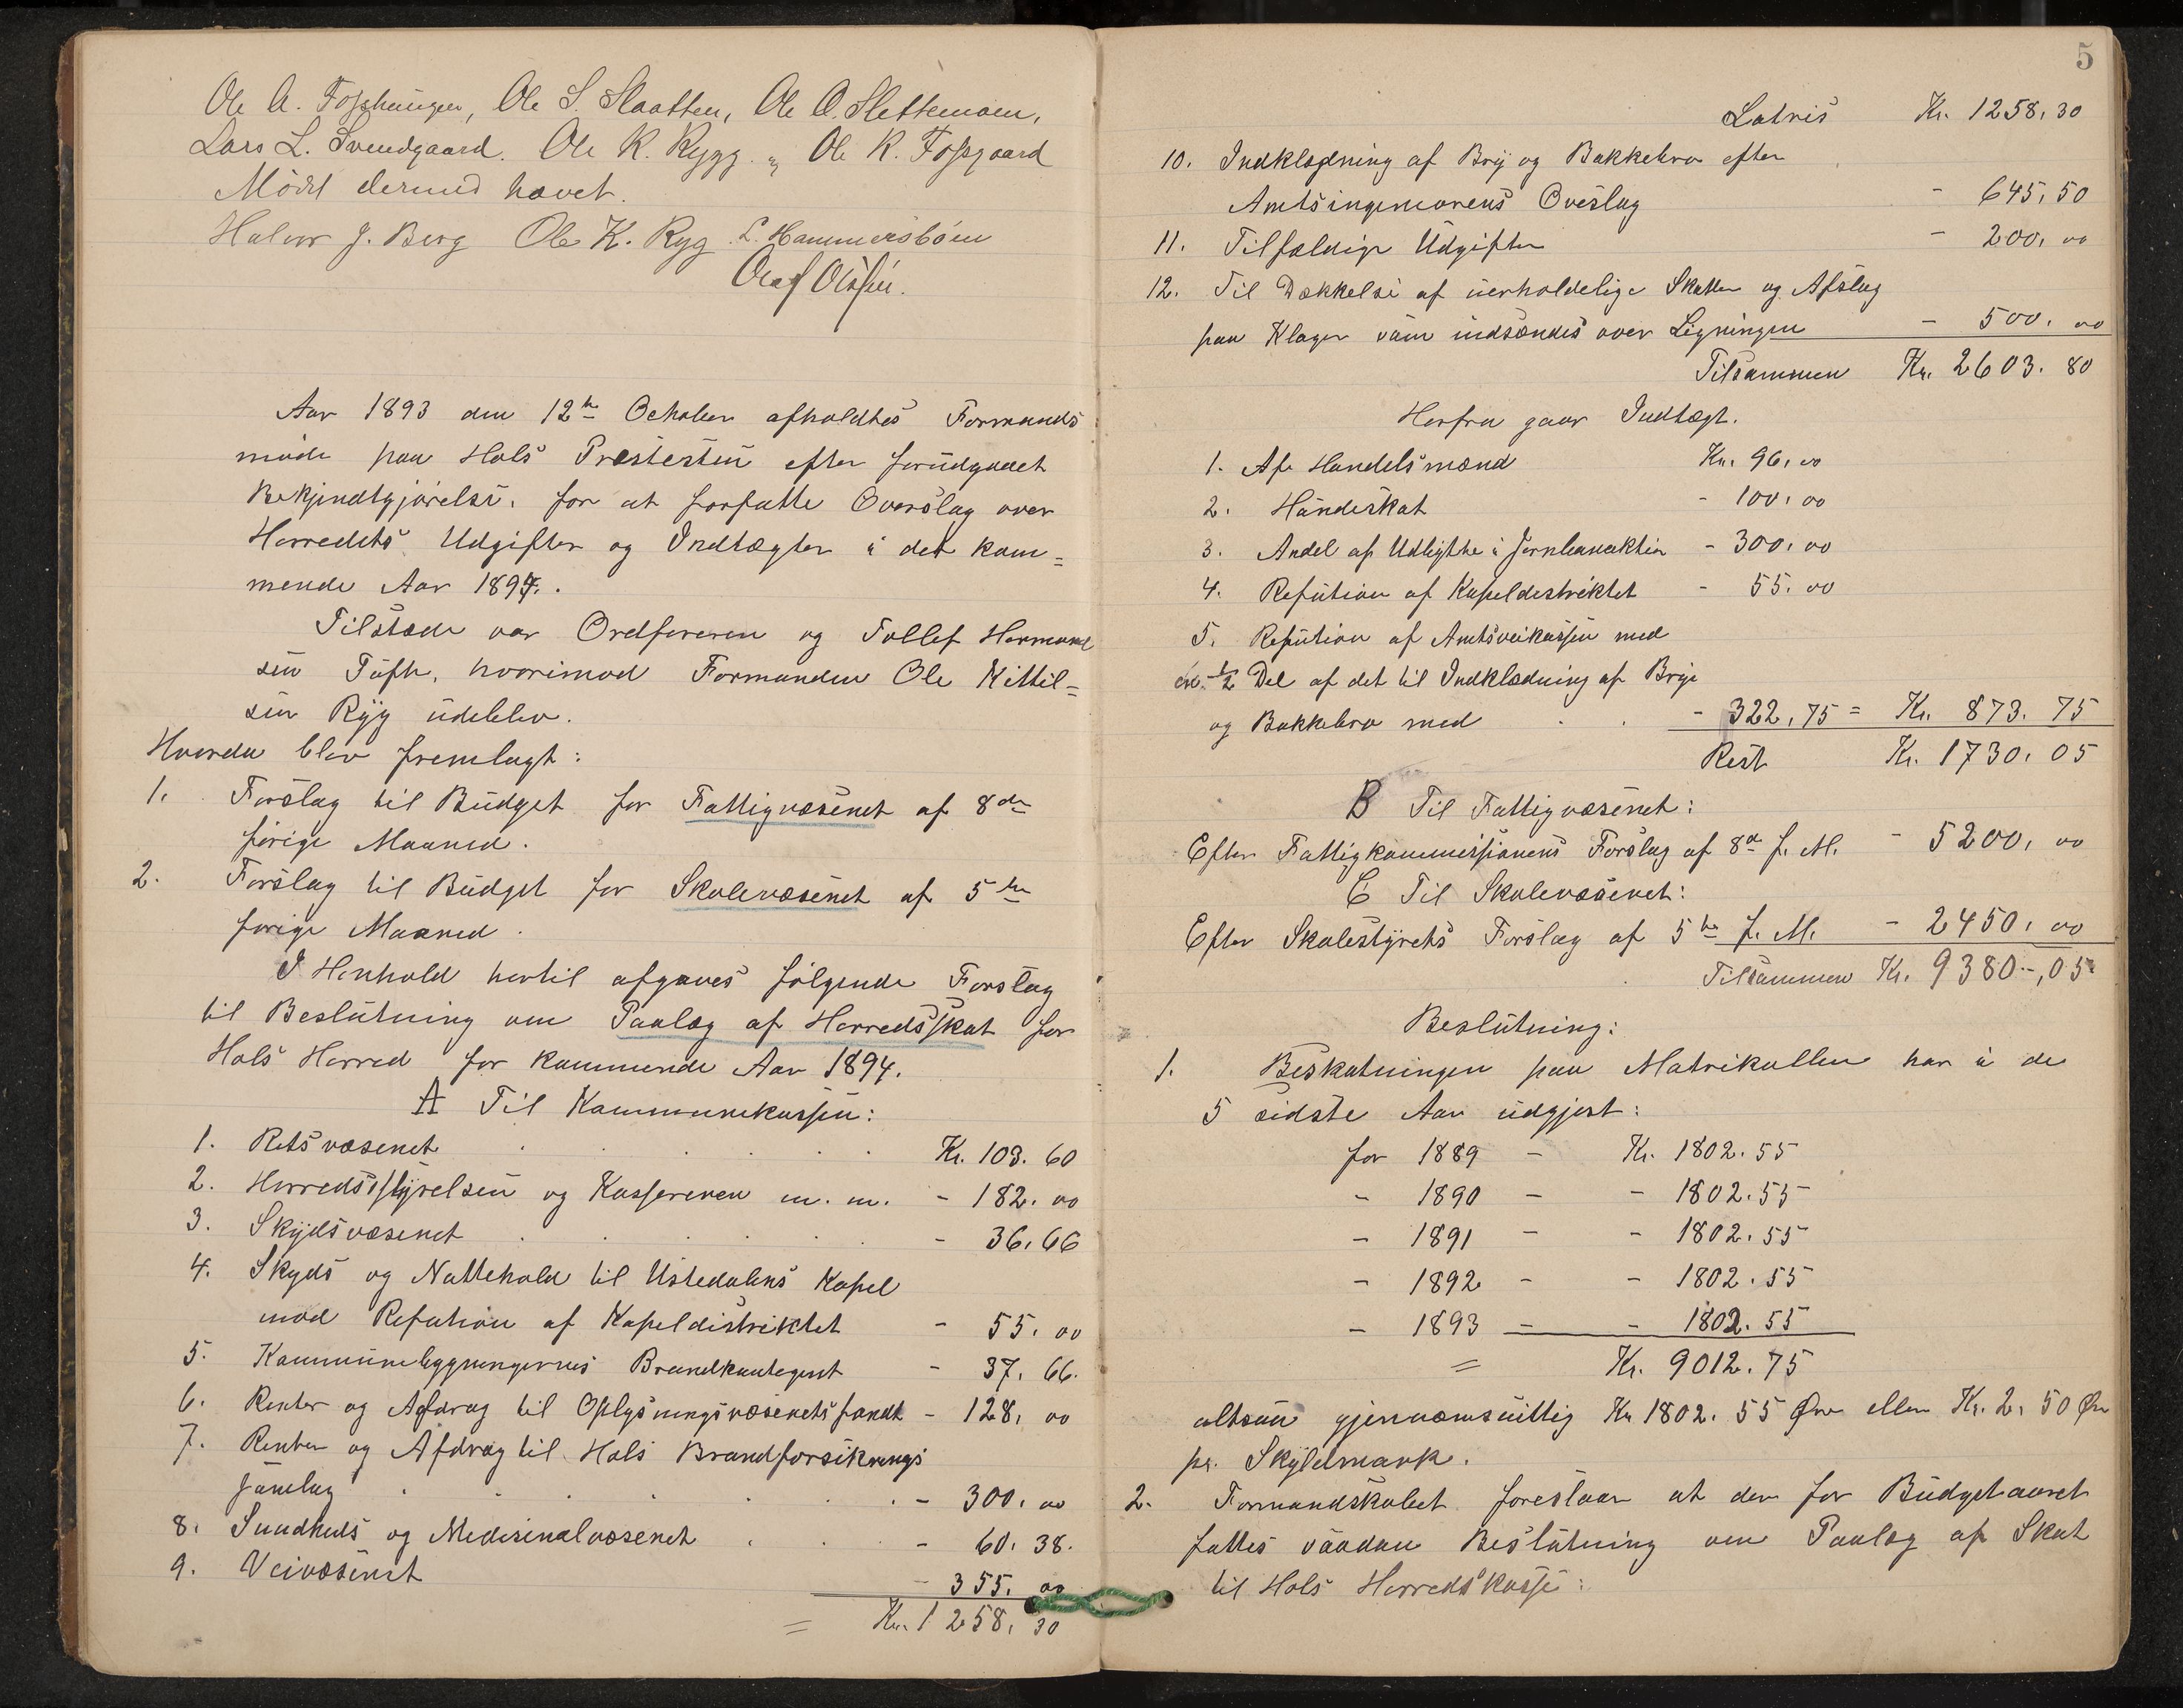 Ole A. Fosshaugen, Ole S. Slaatten, Ole O. Slettemoen,
Lars L. Svendgaard. Ole K. Rygg. " Ole K. Fossgaard
Mödet dermed hævet.
Halvor J. Berg Ole K. Ryg L. Hammersböen
Olaf Olssen.
Aar 1893 den 12te October afholdtes Formands
möde paa Hols Prestesten efter forudgaaet
Bekjendtgjörelse, for at forfatte Overslag over
Herredets Udgifter og Indtægter i det kom=
mende Aar 1894.
Tilstede var Ordføreren og Tollef Hermand
sen Tufte, hvorimod Formanden Ole Kittil=
sen Ryg udeblev.
Hvorda blev fremlagt:
1. Forslag til Budget for Fattigvæsenet af 8de
forige Maaned.
2. Forslag til Budget for Skolevæsenet af 5te
forige Maaned.
I Henhold hertil afgaves følgende Forslag
til Beslutning om Paalæg af Herredsskat for
Hols Herred for kommende Aar 1894.
A Til Kommunekassen:
1. Retsvæsenet Kr. 103.60
2. Herredsstyrelsen og Kassereren m.m. - 182.00
3. Skydsvæsenet - 36,66
4. Skyds og Nattehold til Ustedalens Kapel
mod Refution af Kapeldistriktet - 55,00
5. Kommunebygningernes Brandkontegent - 37,66.
6. Renter og Afdrag til Oplysningsvæsenets fondt - 128,00
7. Renter og Afdrag til Hols Brandforsikrings
samlag - 300,00
8. Sundheds og Medisinalvæsenet - 60,38.
9. Veivæsenet - 355.00
= Kr. 1258,30
5
Latris Kr. 1258,30
10. Indklædning af Bry og Bakkebro efter
Amtsingeniørens Overslag - 645,50
11. Tilfældige Udgifter - 200,00
12. Til Dækkelse af uerholdelige Skatter og Afslag
paa Klager som indsendes over Ligningen - 500,00
Tilsammen Kr. 2603.80
Herfra gaar Indtægt.
1. Af Handelsmænd Kr. 96,00
2. Hundeskat - 100,00
3. Andel af Udbytte i Jernbaneaktier - 300,00
4. Refution af Kapeldistriktet - 55,00
5. Refution af Amtsveikassen med
1/2 Del af det til Indklædning af Brye
og Bakkebro med - 322,75 = Kr. 873.75
Rest Kr. 1730,05
B Til Fattigvæsenet:
Efter Fattigkommissionens Forslag af 8de f. M. - 5200,00
C Til Skolevæsenet:
Efter Skolestyrets Forslag af 5te f. M. - 2450,00
Tilsammen Kr. 9380-,05
Beslutning:
1. Beskatningen paa Matrikullen har i de
5 sidste Aar udgjort:
for 1889 - Kr. 1802.55
- 1890 - - 1802.55
- 1891 - - 1802.55
- 1892 - - 1802.55
- 1893 - - 1802.55
= Kr. 9012.75
altsaa gjennemsnittig Kr 1802.55 Øre eller Kr. 2,50 Øre
pr. Skyldmark.
2. Formandskabet foreslaar at der for Budgetaaret
fattes saadan Beslutning om Paalæg af Skat
til Hols Herredskasse: